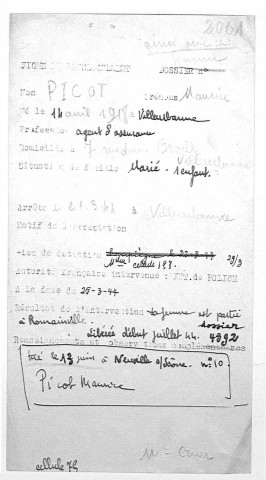 2061
FICHE DE RENSEIGNEMENTS DOSSIER n°
Nom PICOT Prénoms Maurice
Né le 14 avril 1918 à Villeurbanne
Profession agent d'assurances
Domicilié à 7 rue
Villeurbanne
Situation de famille Marié. 1 enfant.
Arrêté le 21.3.44 à Villeurbanne
Motif de l'arrestation
Lieu de détention Compiègne le 22-3-44 29/3
Mluc cellule 183.
Autorité française intervenue : de POLICE
A la date du 25-3-44
Résultat de l'intervention sa femme est partie
à Romainville. dossier
Libérée début juillet 44. 4392
Renseignements et observations complémentaires
tué le 13 juin à Neuville s/Saône. n° 10.
Picot Maurice
cellule 76